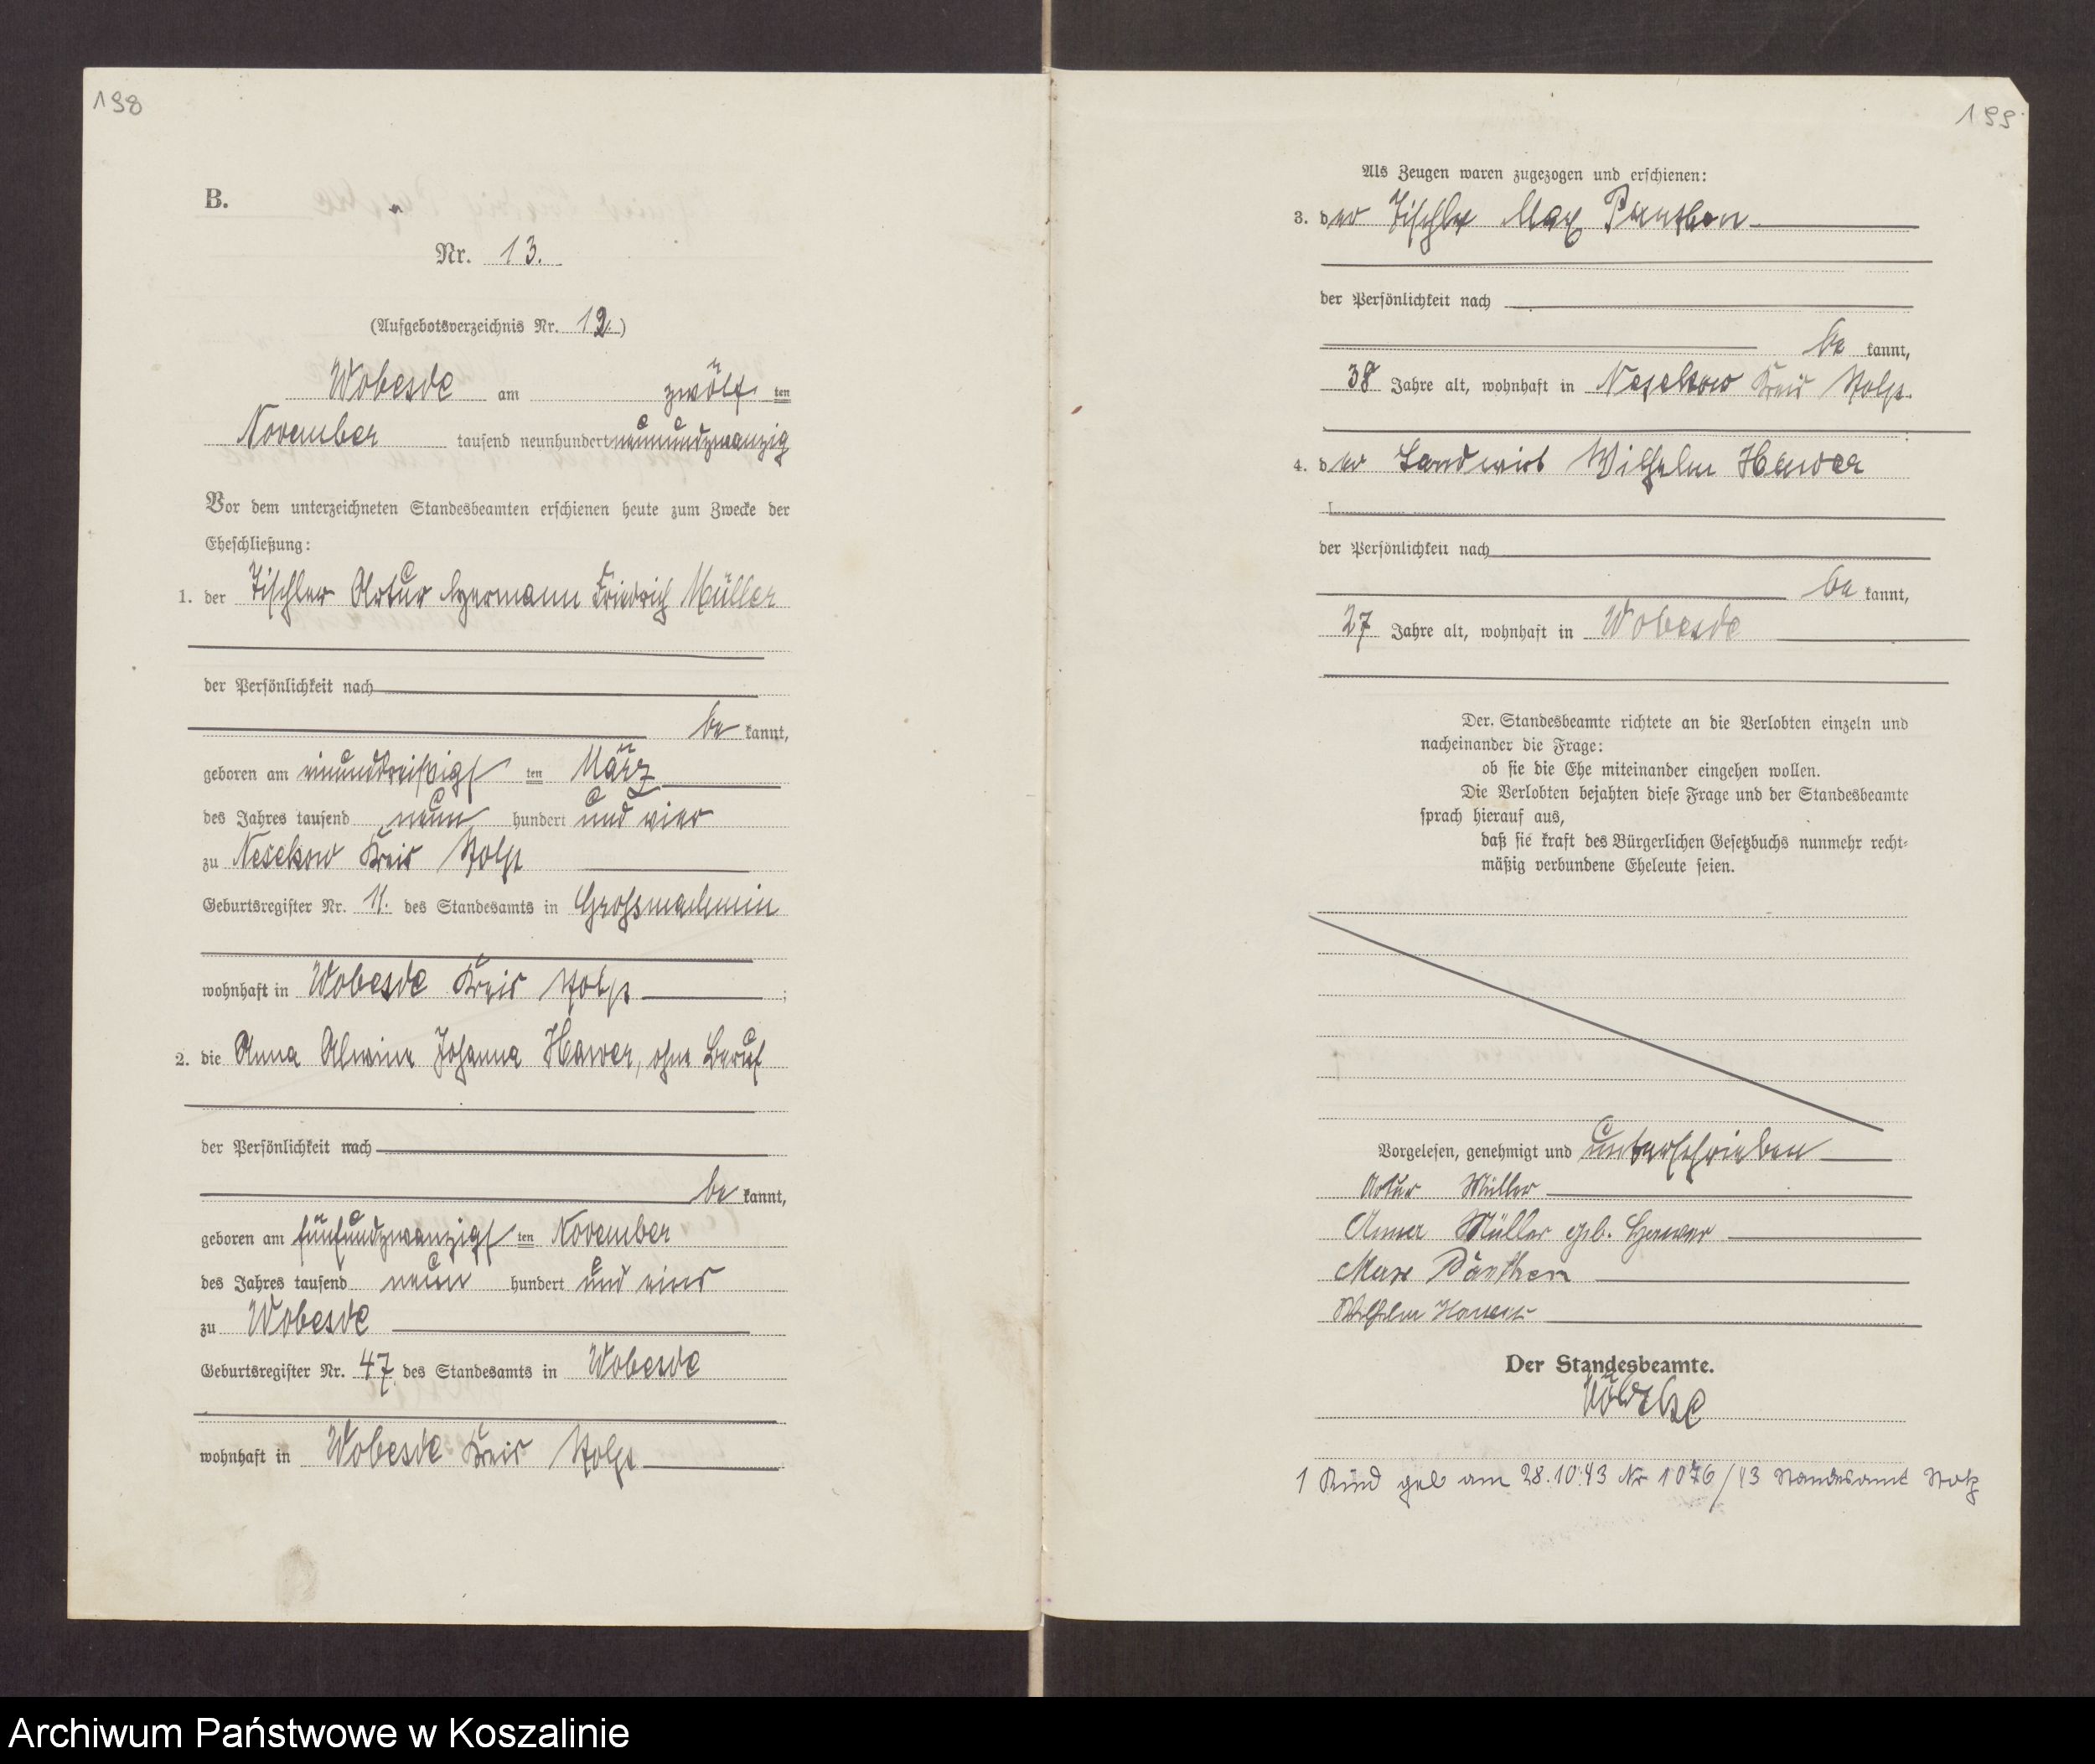 198
B.
Nr. 13.
(Aufgebotsverzeichnis Nr. 12.)
Wobesde am zwölf ten
November tausend neunhundert neunundzwanzig
Vor dem unterzeichneten Standesbeamten erschienen heute zum Zwecke der
Eheschließung:
1. der Tischler Artur Hermann Friedrich Müller
der Persönlichkeit nach
be kannt,
geboren am einunddreißigs ten März
des Jahres tausend neun hundert und vier
zu Nesekow Kreis Stolp
Geburtsregister Nr. 11. des Standesamts in Grossmachmin
wohnhaft in Wobesde Kreis Stolp ;
2. die Anna Alwine Johanna Hawer, ohne Beruf
der Persönlichkeit nach
be kannt,
geboren am fünfundzwanzigs ten November
des Jahres tausend neun hundert und eins
zu Wobesde
Geburtsregister Nr. 47 des Standesamts in Wobesde
wohnhaft in Wobesde Kreis Stolp
199
Als Zeugen waren zugezogen und erschienen:
3. der Tischler Max
der Persönlichkeit nach
be kannt,
38 Jahre alt, wohnhaft in Nesekow Kreis Stolp.
4. der Landwirt Wilhelm Hawer
der Persönlichkeit nach
be kannt,
27 Jahre alt, wohnhaft in Wobesde
Der Standesbeamte richtete an die Verlobten einzeln und
nacheinander die Frage:
ob sie die Ehe miteinander eingehen wollen.
Die Verlobten bejahten diese Frage und der Standesbeamte
sprach hierauf aus,
daß sie kraft des Bürgerlichen Gesetzbuchs nunmehr recht-
mäßig verbundene Eheleute seien.
Vorgelesen, genehmigt und unterschrieben
Artur Müller
Anna Müller geb. Hawer
Max
Wilhelm Hawer
Der Standesbeamte.
1 Kind geb am 28.10.43 Nr 1076/43 Standesamt Stolp
Archiwum Państwowe w Koszalinie